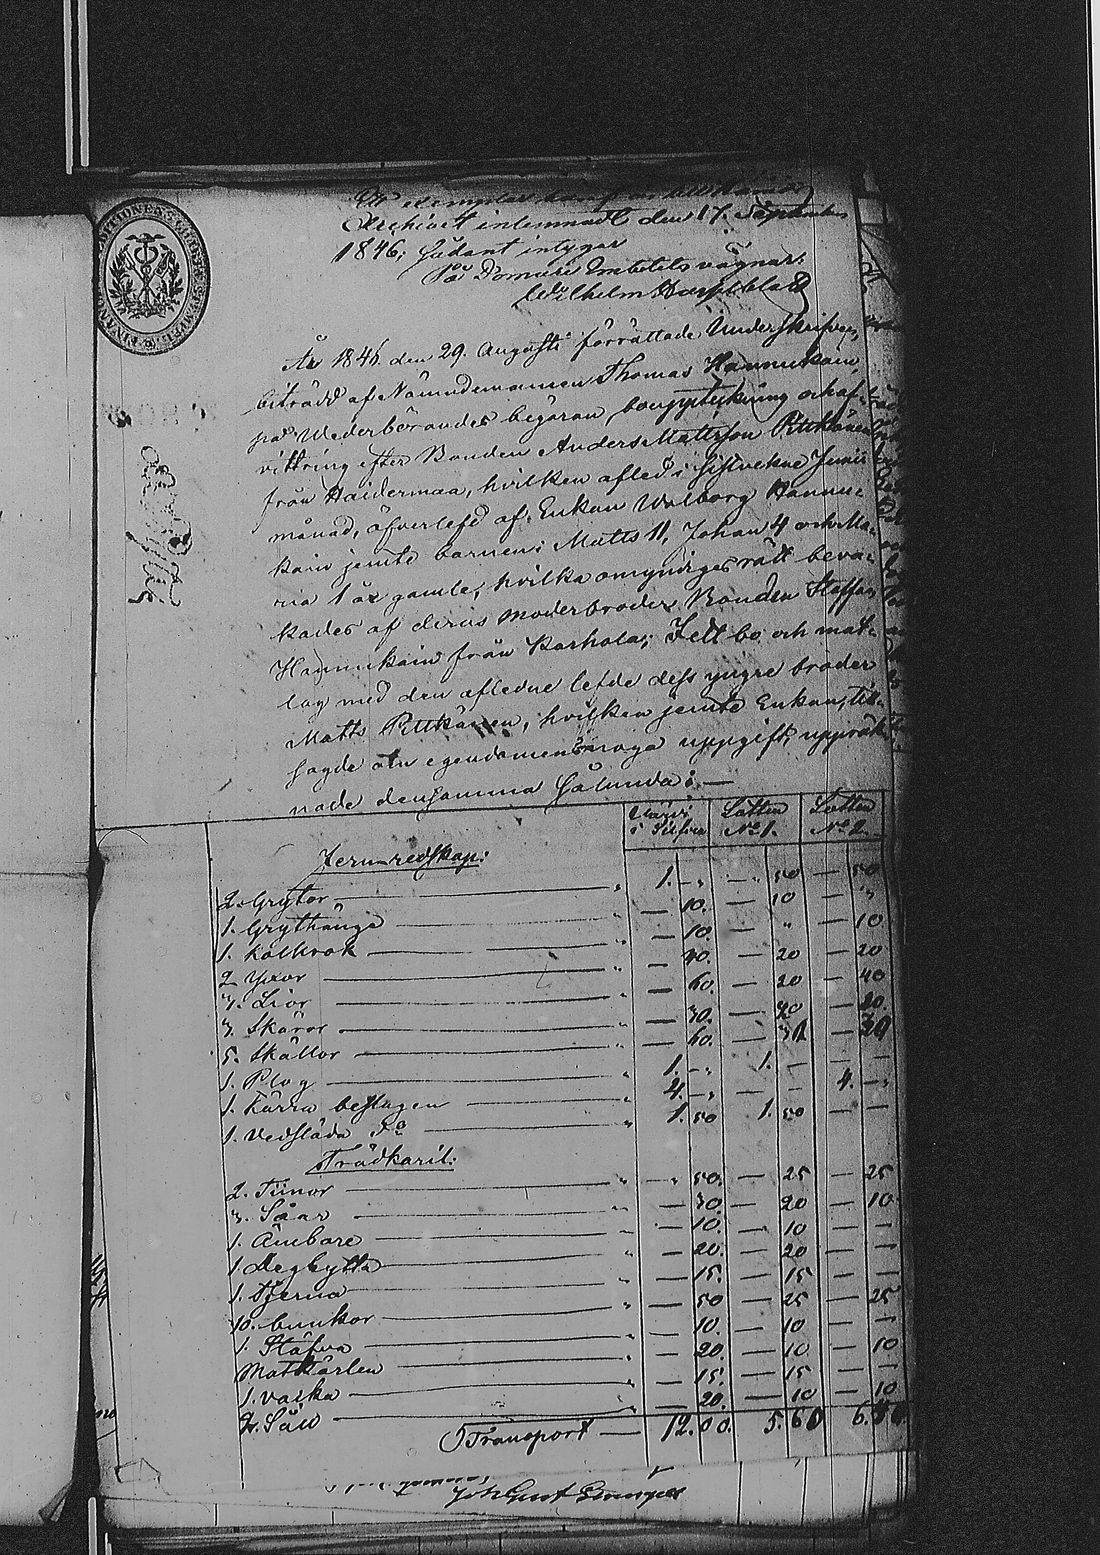 Ett exemplar
Archivet inlemnadt den 17. September
1846; Sådant intygar
På Domare Embetets vägnar:
Wilhelm Hasselblatt
År 1846. den 29. Augusti förrättade Underskrifven,
biträdd af Nämndemannen Thomas Hannukain,
på Wederbörandes begäran, bouppteckning och af-
vittring efter Bonden Anders Mattsson Pitkänen
från Haidermaa, hvilken afled i sistvekne Junii
månad, öfverlefd af Enkan Walborg Hannu-
kain jemte barnen: Matts 11, Johan 4 och Ma-
ria 1 år gamle, hvilka omyndiges rätt beva-
kades af deras Moderbroder Bonden Staffan
Hannukain från Karhola; I ett bo och mat-
lag med den aflidne lefde dess yngre broder
Matts Pitkänen, hvilken jemte Enkan, till-
sagde om egendomens noga uppgift, uppräk-
nade densamma sålunda: —
Värde i Silfver Lotten No 1. Lotten No 2.
Jern-redskap:
2. Grytor 1. — „ — 50 — 50
1. Grythänge — 10. — 10 — „
1. Kolkrok — 10. — „ — 10
2 Yxor — 40. — 20 — 20
3. Lior — 60. — 20 — 40
3. Skäror — 30. — 20 — 10
5. Skällor — 60. — 30 — 30
1. Plog 1. — „ 1. — — —
1. Kärra beslagen 4. — „ — — 4. — „
1. Vedsläda Do 1. 50 1. 50 — —
Trädkäril:
2. Tunor — 50. — 25 — 25
3. Såar — 30. — 20 — 10
1. Ämbare — 10. — 10 — —
1. Degbytta — 20. — 20 — —
1. Tjerna — 15. — 15 — —
10. bunkor — 50 — 25 — 25
1. Stäfva — 10. — 10 — —
Matkärlen — 20. — 10 — 10
1. Vaska — 15. — 15 — —
2. Såll — 20. — 10 — 10
Transport — 12.00. 5.60